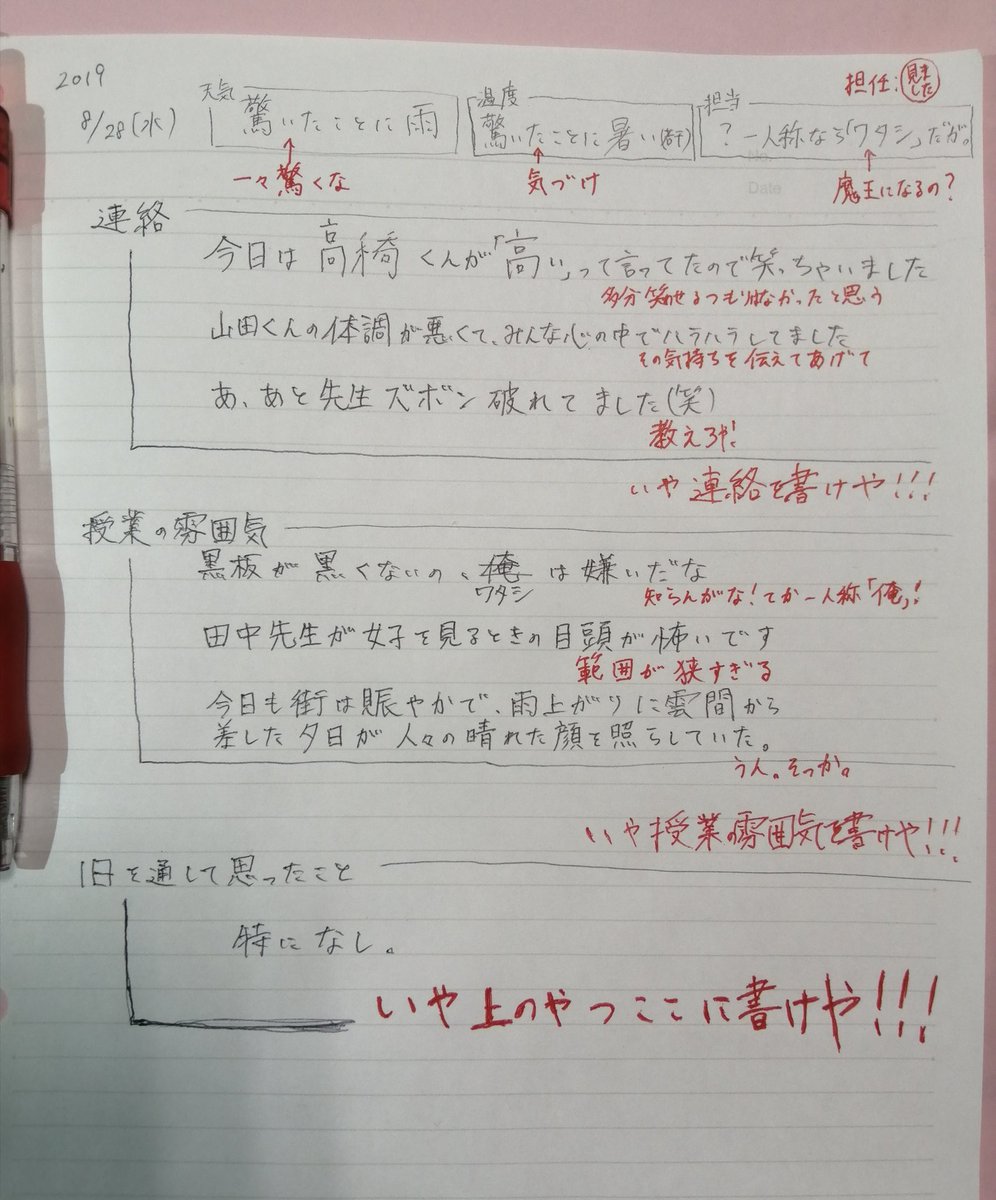 2019
8/28(水)
担任:見ました
天気
驚いたことに雨
一々驚くな
温度
驚いたことに暑い
気づけ
担当
? 一人称なら「ワタシ」だが。
魔王になるの?
Date
連絡
今日は高橋くんが「高い」って言ってたので笑っちゃいました
多分笑せるつもりはなかったと思う
山田くんの体調が悪くて、みんな心の中でハラハラしてました
その気持ちを伝えてあげて
あ、あと先生ズボン破れてました(笑)
教えろや!
いや連絡を書けや!!!
授業の雰囲気
黒板が黒くないの、俺は嫌いだな
ワタシ
知らんがな!てか一人称「俺」!
田中先生が女子を見るときの目頭が怖いです
範囲が狭すぎる
今日も街は賑やかで、雨上がりに雲間から
差した夕日が人々の晴れた顔を照らしていた。
うん。そっか。
いや授業の雰囲気を書けや!!!
1日を通して思ったこと
特になし。
いや上のやつここに書けや!!!